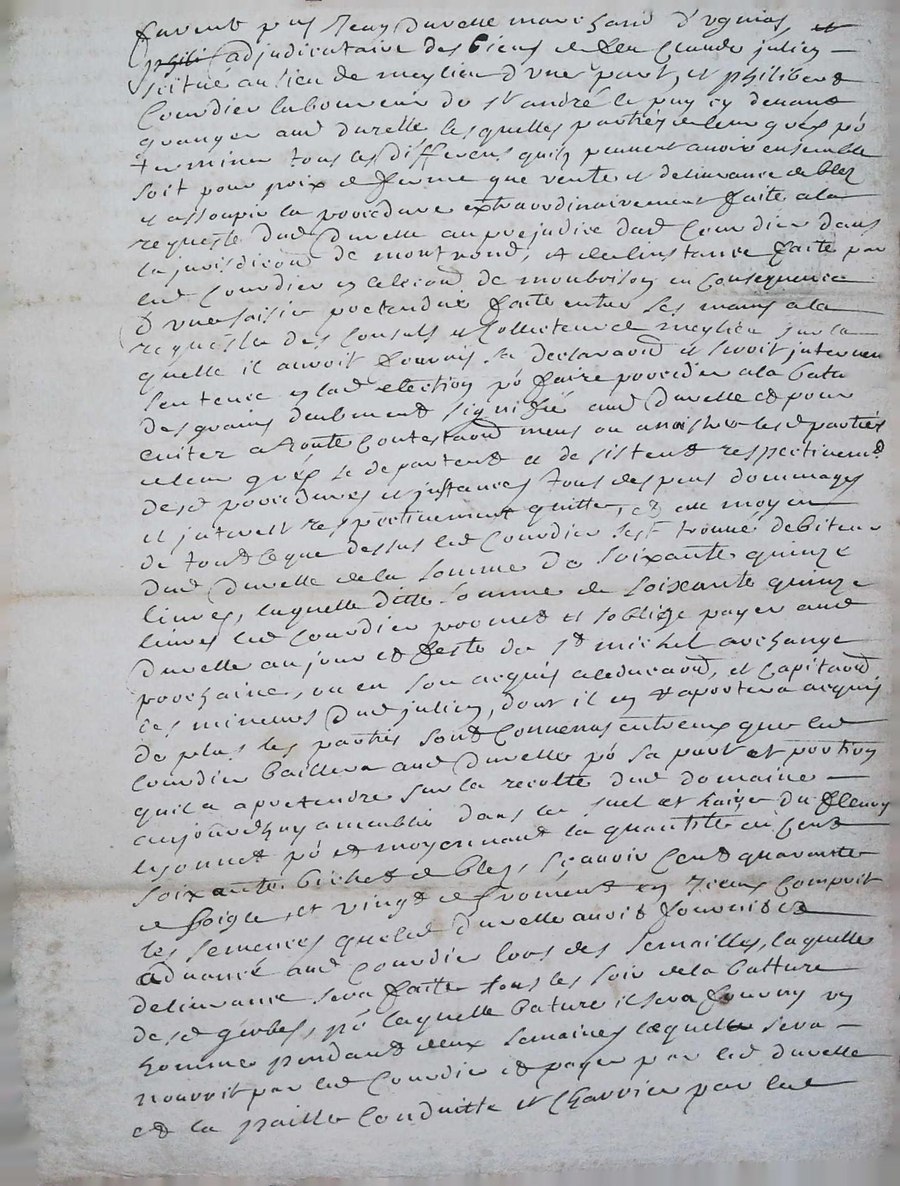 furent pns Jean Durelle marchand d'ugnias et
adjudicataire des biens de feu Claude julien
scitué au lieu de meylieu d'une part, et philibert
Courdier laboureur de st andré le puy cy devant
granger aud durelle lesquelles parties de leur grés pō
terminer tous les differens quils peuvent avoir ensemble
soit pour prix de ferme que vente et delivrance de bled
et assoupir la procedure extraordinairement faite a la
requeste dud Durelle au prejudice dud Courdier dans
la jurisdicōn de montrond, et de l'instance faite par
led Courdier en lelecōn de montbrison en consequence
d'une saisie pretendue faite entre ses mains a la
requeste des Consuls et Collecteurs de meylieu sur la
quelle il auroit fourny sa declaraōn et seroit intervenu
sentence en lad election pō faire proceder a la batu
des grains deuhement signifié aud Durelle et pour
eviter a toute contestaōn meus ou a naistre lesd parties
de leur grés se departent et desistent respectivemt
desd procedures et instances tous despens dommages
et interest respectivement quitte, et au moyen
de tout ce que dessus led Courdier sest trouvé debiteur
dud Durelle de la somme de soixante quinze
livres, laquelle ditte somme de soixante quinze
livres led Courdier promet et soblige payer aud
Durelle au jour et feste de st michel archange
prochaine, ou en son acquis a et Capitaōn
des mineurs dud julien, dont il en rapportera acquis
de plus les parties sont convenus entreux que led
Courdier baillera aud Durelle pō sa part et portion
quil a a pretendre sur la recolte dud domaine
aujourdhuy ameublie dans le suel et du fleury
lyonnet pō et moyennant la quantité de cent
soixante bichet de bled, sçavoir cent quarante
de seigle, et vingt de froment en iceux compris
les semences que led durelle avoit fourni et
advancé aud Courdier lors des semailles, laquelle
delivrance sera faite tous les soir de la batture
desd gerbes, pō laquelle bature il sera fourny un
homme pendant deux semaines lequel sera
nourrit par led Courdier et payer par led durelle
et la paille conduitte et charrier par led